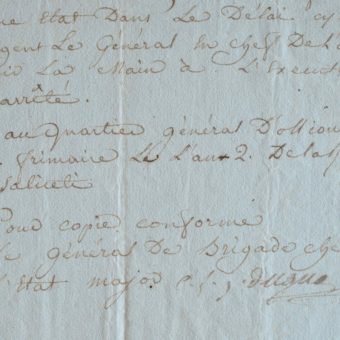 ue Etat Dans Le Délai cy
gent Le Général En chef De L'a
La Main à L'Execut
arrêté.
au Quartier général D'olliou
frimaire L'an 2. De la
Saliceti
Pour copie conforme
Le général De Brigade che
l'Etat major C. f. j. Dugua